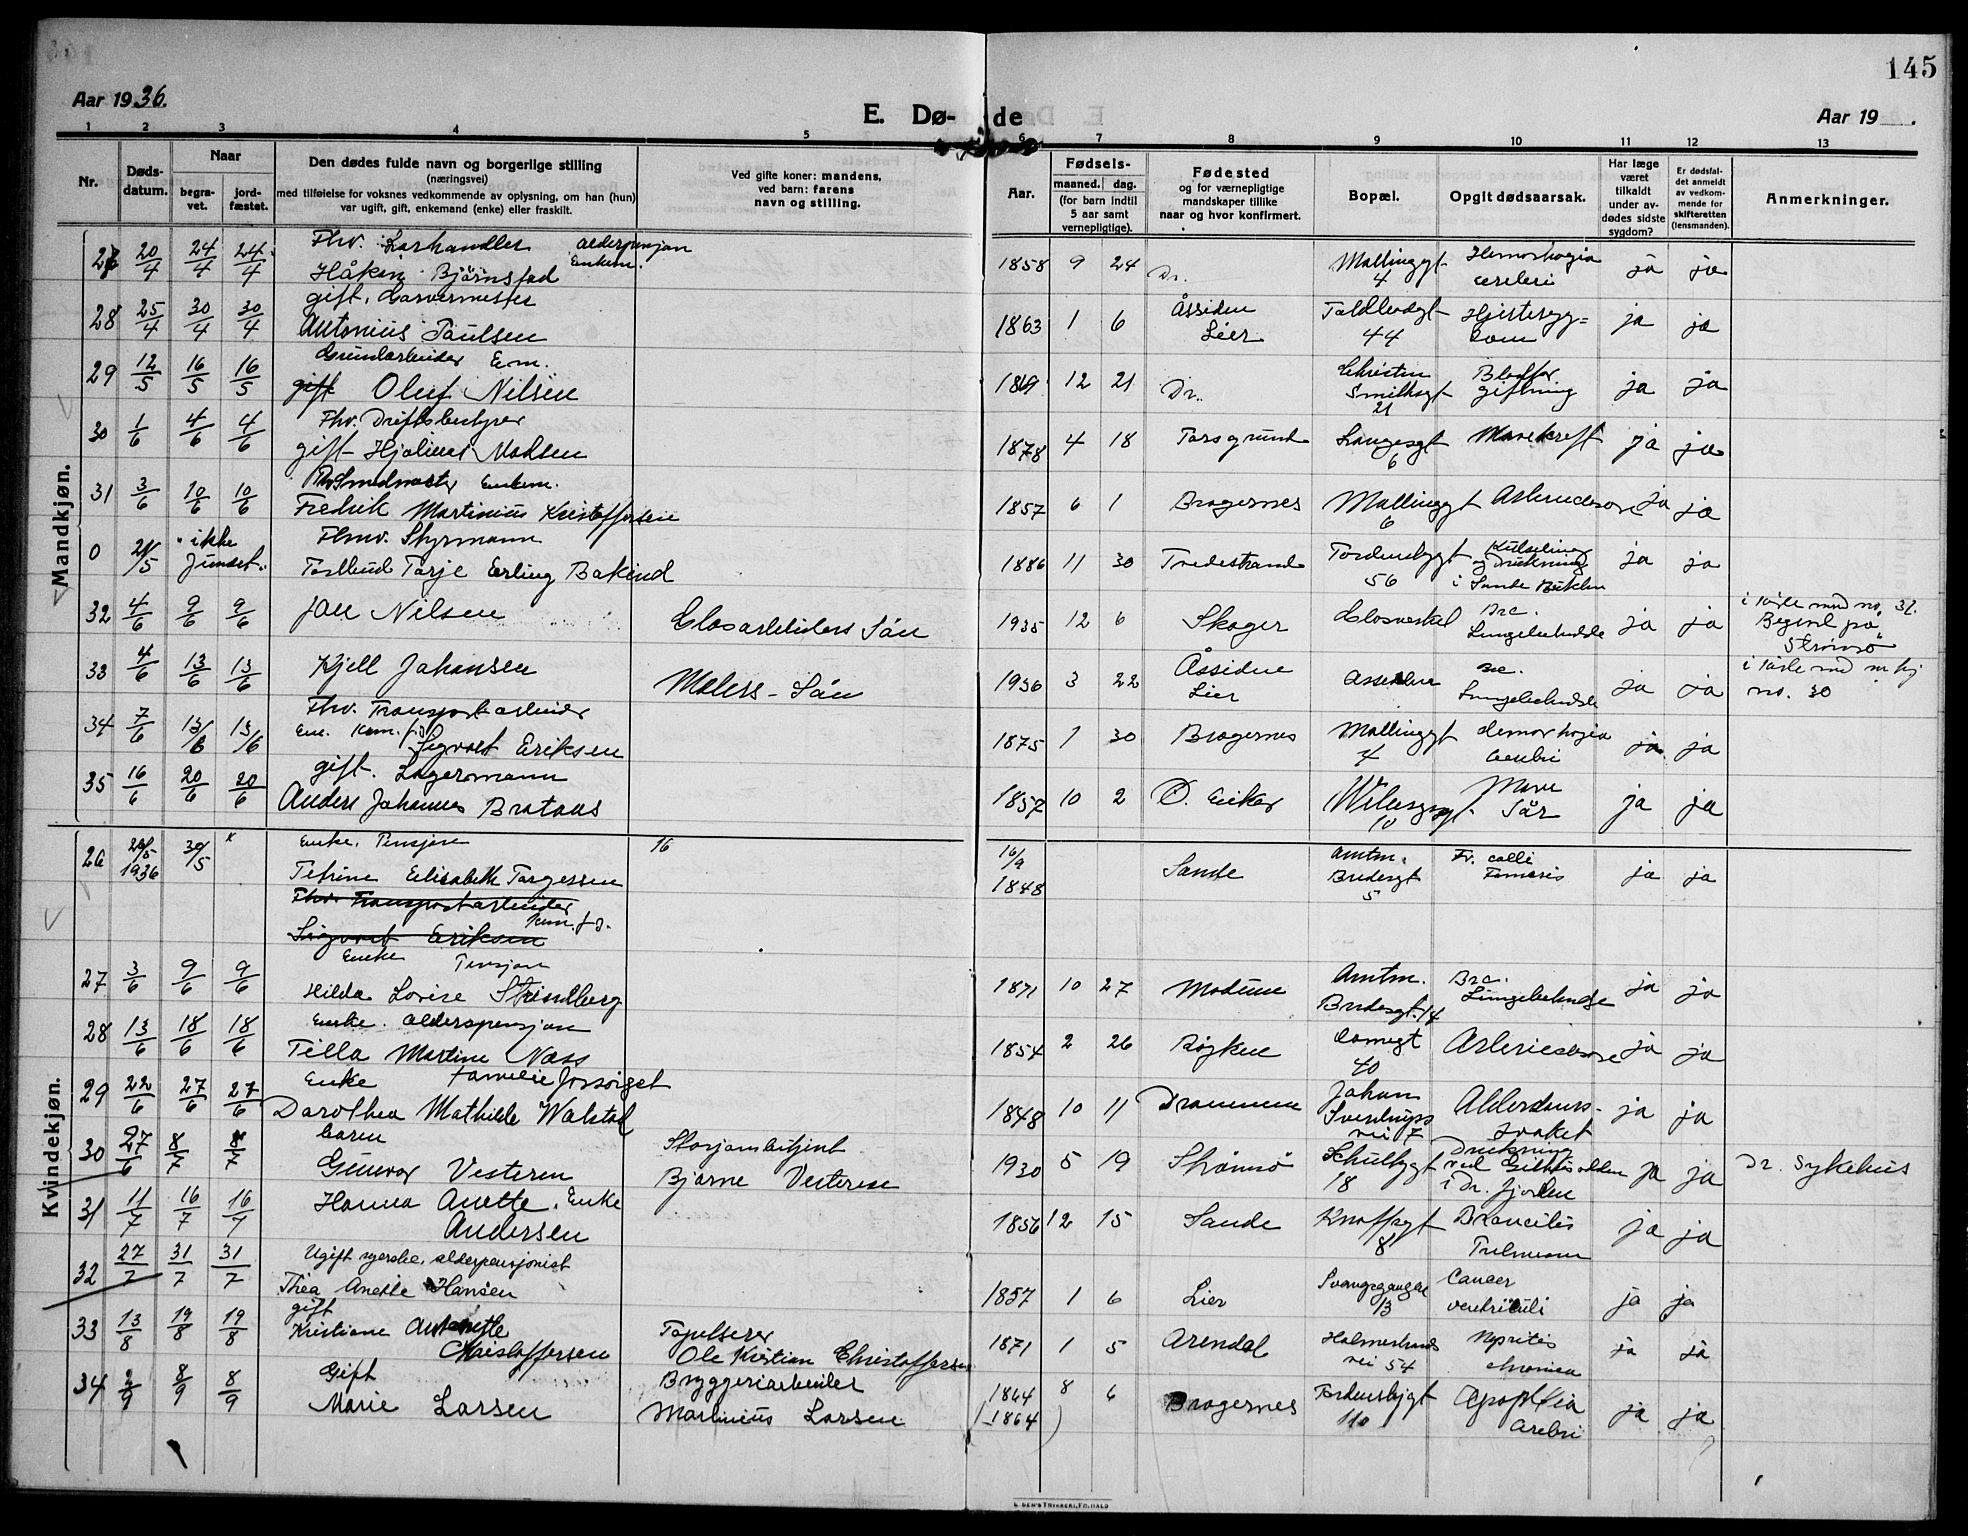 145
Aar 1936.
E. Døde
Aar 19 .
1 2 3 4 5 6 7 8 9 10 11 12 13
Nr.
Døds-datum.
Naar
begra-vet.
jord-fæstet.
Den dødes fulde navn og borgerlige stilling
(næringsvei)
med tilføielse for voksnes vedkommende av oplysning, om han (hun)
var ugift, gift, enkemand (enke) eller fraskilt.
Ved gifte koner: mandens,
ved barn: farens
navn og stilling.
Aar.
Fødsels-
maaned. dag.
(for barn indtil
5 aar samt
vernepligtige).
Fødested
og for værnepligtige
mandskaper tillike
naar og hvor konfirmert.
Bopæl.
Opgit dødsaarsak.
Har læge
været
tilkaldt
under av-
dødes sidste
sygdom?
Er dødsfal-
det anmeldt
av vedkom-
mende for
skifteretten
(lensmanden).
Anmerkninger.
Mandkjøn.
27 20/4 24/4 24/4 Fhv. alderpensjon Enkem. Håken Bjørnstad 1858 9 24 Dr. Mallinggt 4 Hemorhagia cerebri ja ja
28 25/4 30/4 30/4 gift. Garvermester Antonius Paulsen 1863 1 6 Åssiden Lier Toldbodgt 44 ja ja
29 12/5 16/5 16/5 Grundarbeider Em. gift Oluf Nilsen 12 21 Dr. Christen Smithsgt 21 Blodforgiftning ja ja
30 1/6 4/6 4/6 Fhv. Driftsbestyrer gift Hjalmar Madsen 1878 4 18 Porsgrund Langesgt 6 Mavekreft ja ja
31 3/6 10/6 10/6 Enkem. Fredrik Martinius Kristoffersen 1857 6 1 Bragernes Mallinggt 6 ja ja
0 21/5 "ikke funnet". Fhv. Styrmann Tarje Erling Bakind 1886 11 30 Tvedestrand Tordenskjgt 56 og Drukning i Sande ja ja
32 4/6 9/6 9/6 Jan Nilsen Glasarbeiders Sön 1935 12 6 Skoger Glasverket Brc. Lungebetendelse ja ja i kiste med no. 31. Begravd på Strömsö
33 4/6 13/6 13/6 Kjell Johansen Malers Sön 1936 3 22 Åssiden Lier Assiden Brc. Lungebetendelse ja ja i kiste med no. 30
34 7/6 13/6 13/6 Fhv. Transportarbeider Em. Kom. fs. Sigvart Eriksen 1875 1 30 Bragernes Mallinggt 4 Hemorhagia cerebri ja ja
35 16/6 20/6 20/6 gift. Lagermann Anders Johannes Brataas 1857 10 2 Ö. Eiker 10 Mave Sår ja ja
Kvindekjøn.
26 1936 30/5 x Enke. Pensjon Elisabeth Torgersen 16 16/9 1848 Sande Amtm. Bredesgt 5 Fr. colli Femoris ja ja
Fhv. Transportarbeider Kom. fs. Sigvart Eriksen
27 3/6 9/6 9/6 Enke Pensjon Hilda Lovise Strindberg 1871 10 27 Modum Amtm. Bredesgt. 14 Brc. Lungebetendelse ja ja
28 13/6 18/6 18/6 Enke. alderspensjon Tilla Martine Næss 1854 2 26 Røyken 40 ja ja
29 22/6 27/6 27/6 Enke familie forsörget Dorothea Mathilde Walstad 1848 10 11 Drammen Johan Sverdrups vei 7 Alderdoms-svaket ja ja
30 27/6 8/7 8/7 barn Gunvor Vesteren Bjarne Vesteren 1930 5 19 Strömsö 18 Drukning ved i Dr. fjorden ja ja Dr. Sykehus
31 11/7 16/7 16/7 Hanna Anette. Enke Andersen 1856 12 15 Sande Knoffsgt 8 ja ja
32 27/7 31/7 31/7 Ugift alderpensjonist Thea Anette Hansen 1857 1 6 Lier 13 Cancer ventriculi ja ja
33 13/8 19/8 19/8 gift Kristiane Antonette Christoffersen Tapetserer Ole Kristian Christoffersen 1871 1 5 Arendal Holmestrands vei 54 chronica ja ja
34 2/9 8/9 8/9 Gift Marie Larsen Bryggeriarbeider Martinius Larsen 1864 (1864) 8 6 Bragernes Tordenskjgt 110 ja ja